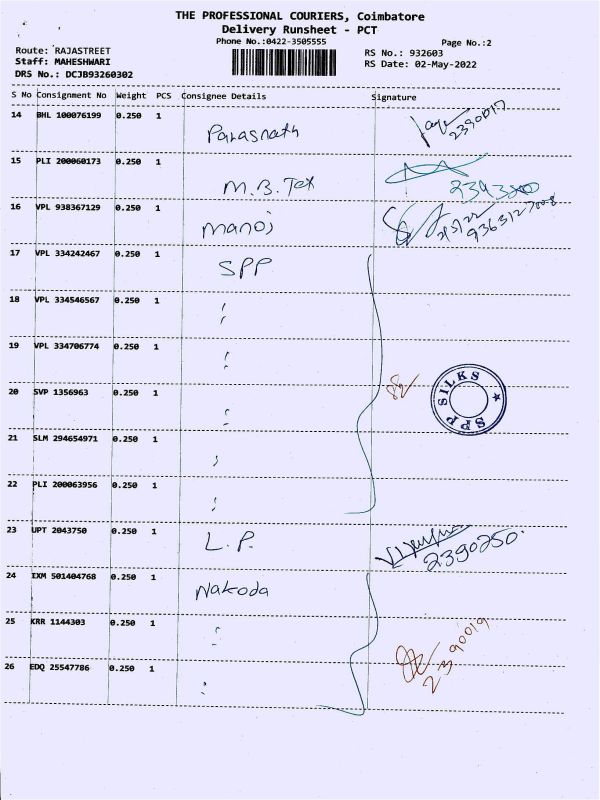 THE PROFESSIONAL COURIERS, Coimbatore
Delivery Runsheet - PCT
Phone No.:0422-3505555
Page No.:2
Route: RAJASTREET
RS No.: 932603
Staff: MAHESHWARI
RS Date: 02-May-2022
DRS No.: DCJB93260302
S No Consignment No Weight PCS Consignee Details Signature
14 BHL 100076199 0.250 1 Parasnath 2390017
15 PLI 200060173 0.250 1 M.B. Tex
16 VPL 938367129 0.250 1 Manoj
17 VPL 334242467 0.250 1 SPP
18 VPL 334546567 0.250 1
19 VPL 334706774 0.250 1
20 SVP 1356963 0.250 1
SPP SILKS
21 SLM 294654971 0.250 1
22 PLI 200063956 0.250 1
23 UPT 2043750 0.250 1 L.P. 2390250
24 IXM 501404768 0.250 1 Nakoda
25 KRR 1144303 0.250 1 2390019
26 EDQ 25547786 0.250 1